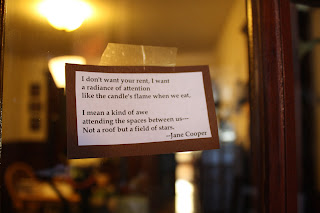 I don't want your rent, I want
a radiance of attention
like the candle's flame when we eat,
I mean a kind of awe
attending the spaces between us---
Not a roof but a field of stars.
--Jane Cooper